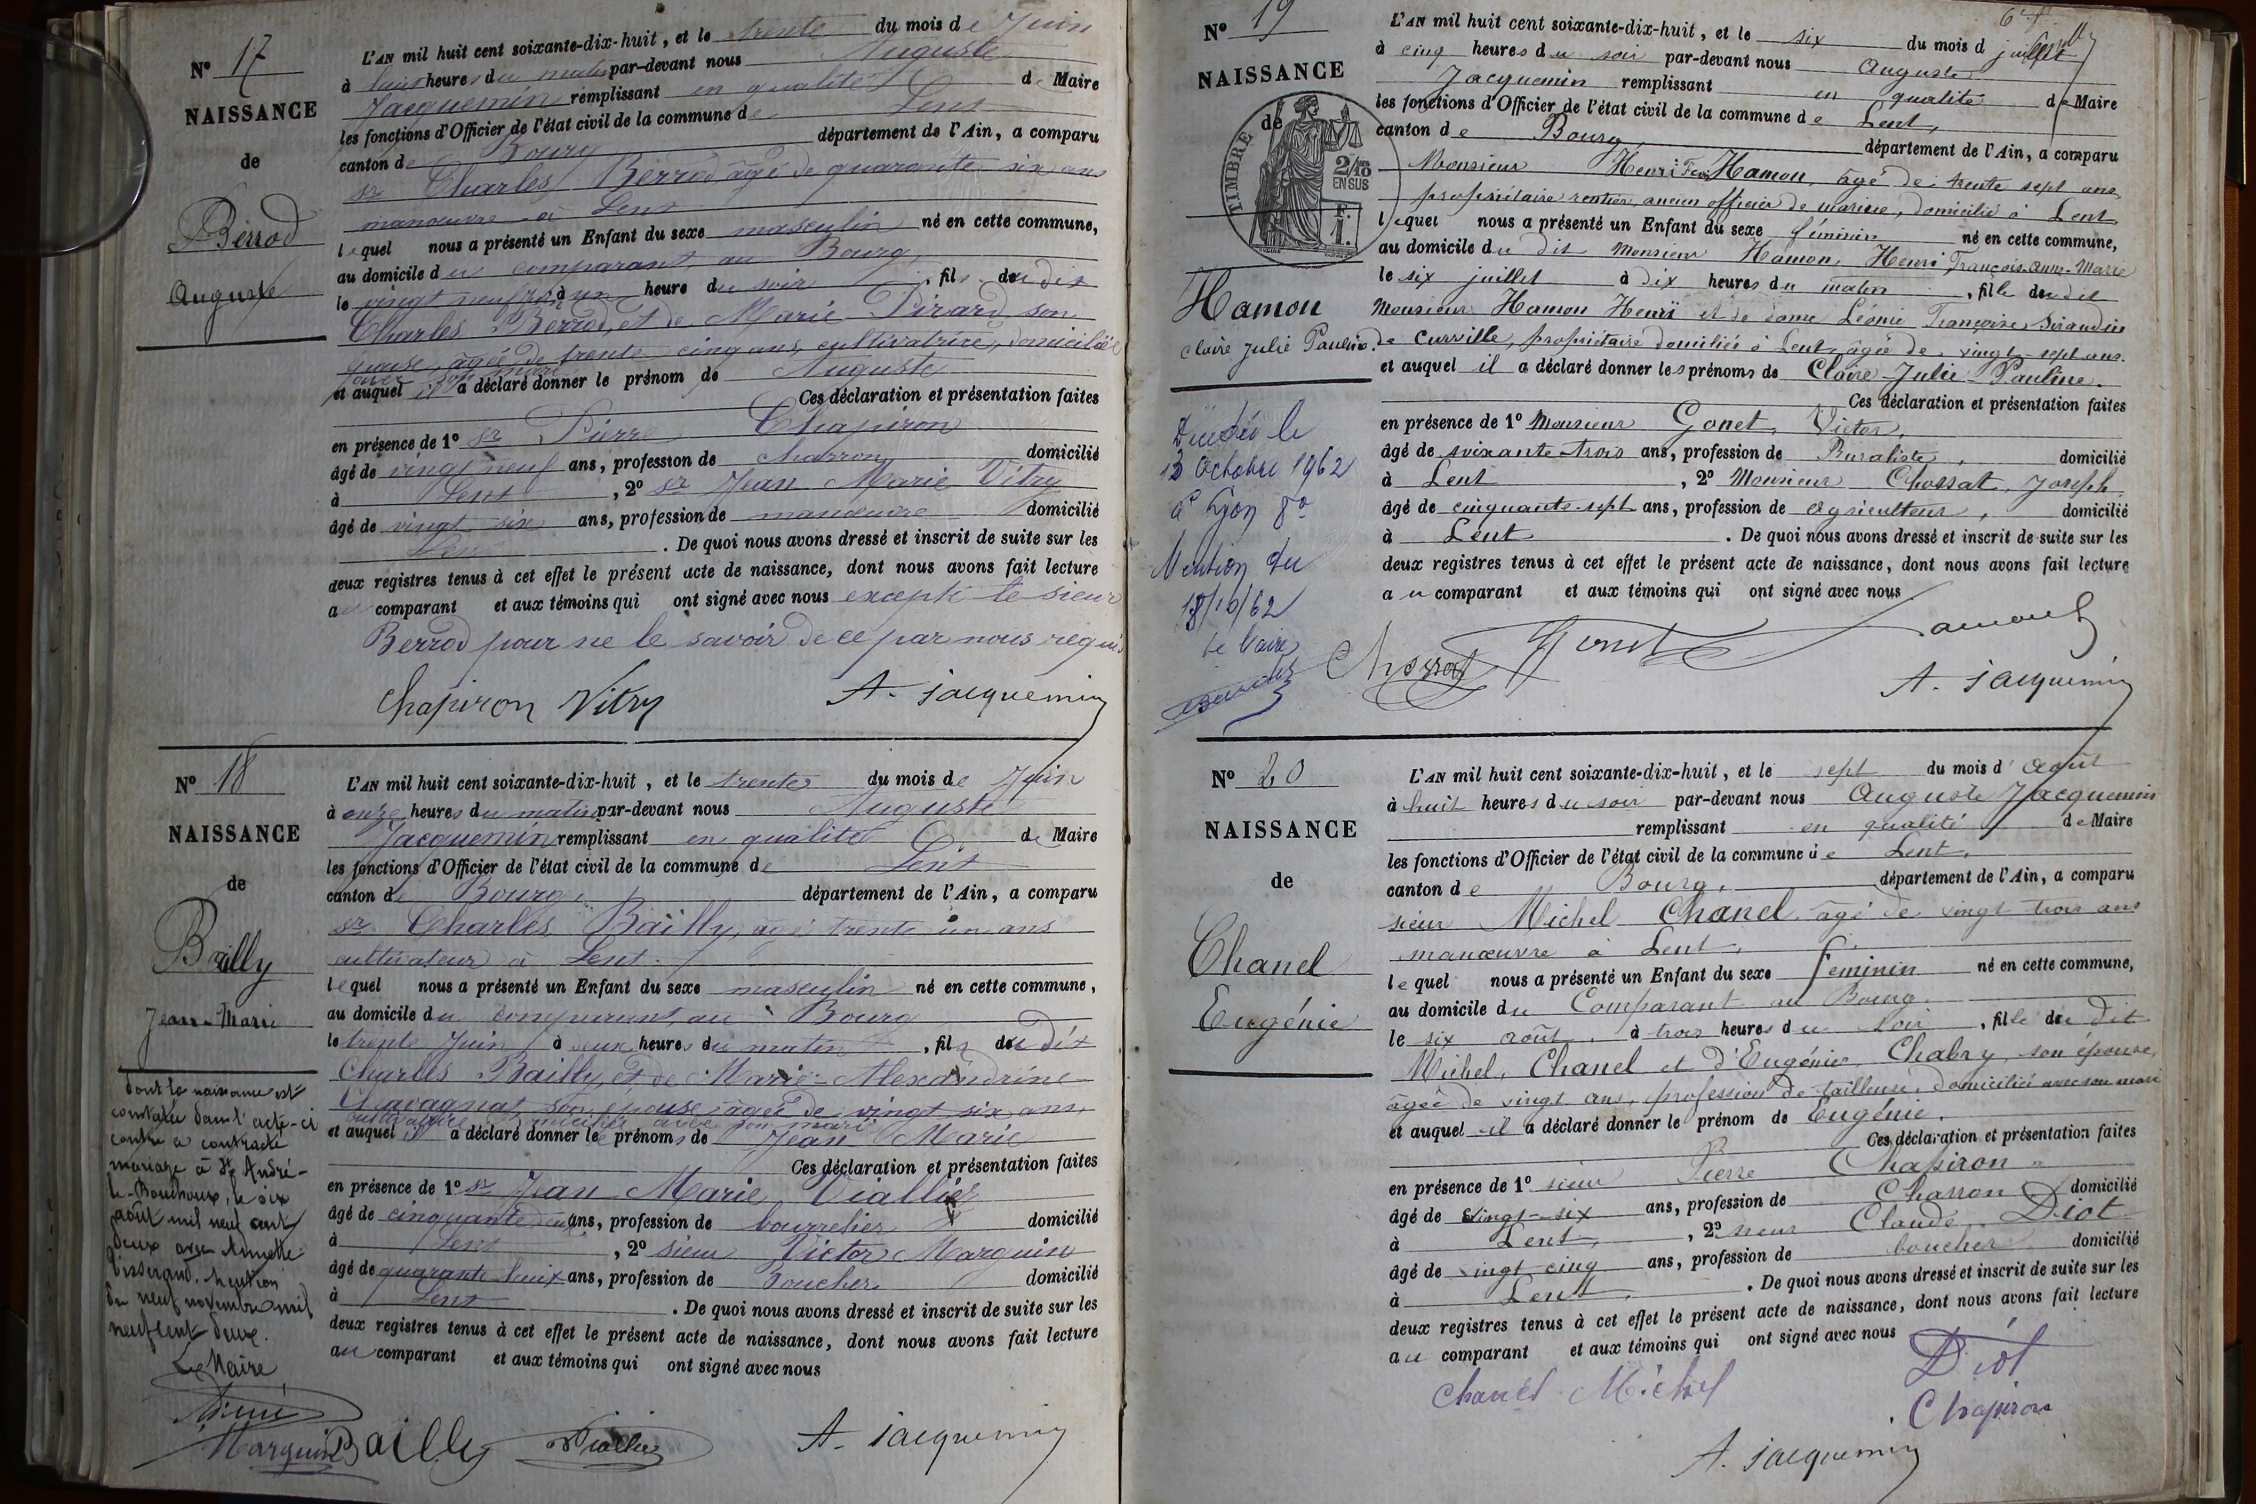 Nº 17
NAISSANCE
de
Berrod
Auguste
L'AN mil huit cent soixante-dix-huit, et le trente du mois de Juin
à huit heures du matin par-devant nous Auguste
Jacquemin remplissant en qualité de Maire
les fonctions d'Officier de l'état civil de la commune de Lent
canton de Bourg département de l'Ain, a comparu
sr Charles Berrod, âgé de quarante six ans
manœuvre à Lent
lequel nous a présenté un Enfant du sexe masculin né en cette commune,
au domicile du comparant, au Bourg,
le vingt neuf à un heure du soir, fils du dit
Charles Berrod, et de Marie Pirard son
épouse, âgée de trente cinq ans, cultivatrice, domiciliée
avec son mari
et auquel il a déclaré donner le prénom de Auguste
Ces déclaration et présentation faites
en présence de 1º sr Pierre Chapiron
âgé de vingt neuf ans, profession de charron domicilié
à Lent, 2º sr Jean Marie Vitry
âgé de vingt six ans, profession de manœuvre domicilié
Lent. De quoi nous avons dressé et inscrit de suite sur les
deux registres tenus à cet effet le présent acte de naissance, dont nous avons fait lecture
au comparant et aux témoins qui ont signé avec nous excepté le sieur
Berrod pour ne le savoir de ce par nous requis
Chapiron Vitry A. Jacquemin
Nº 18
NAISSANCE
de
Bailly
Jean-Marie
L'AN mil huit cent soixante-dix-huit, et le trente du mois de Juin
à onze heures du matin par-devant nous Auguste
Jacquemin remplissant en qualité de Maire
les fonctions d'Officier de l'état civil de la commune de Lent
canton de Bourg département de l'Ain, a comparu
sr Charles Bailly, âgé trente un ans
cultivateur à Lent.
lequel nous a présenté un Enfant du sexe masculin né en cette commune,
au domicile du comparant, au Bourg
le trente Juin à deux heures du matin, fils du dit
Charles Bailly, et de Marie-Alexandrine
Chavagnat son épouse âgée de vingt six ans,
cultivatrice avec son mari
et auquel il a déclaré donner le prénoms de Jean Marie
Ces déclaration et présentation faites
en présence de 1º sr Jean Marie Viallier
âgé de cinquante ans, profession de bourrelier domicilié
à Lent, 2º sieur Victor Marguin
âgé de quarante huit ans, profession de Boucher domicilié
à Lent. De quoi nous avons dressé et inscrit de suite sur les
deux registres tenus à cet effet le présent acte de naissance, dont nous avons fait lecture
au comparant et aux témoins qui ont signé avec nous
dont la naissance est
constatée dans l'acte-ci
contre a contracté
mariage à St André-
le-Bouchoux, le six
août mil neuf cent
deux avec Annette
Tisserand. Mention
du neuf novembre mil
neuf cent deux.
Le Maire
Marguin Bailly Viallier A. Jacquemin
Nº 19
NAISSANCE
de
TIMBRE
2/10
EN SUS
F.
1.
Hamon
Claire Julie Pauline
L'AN mil huit cent soixante-dix-huit, et le six du mois d juillet
à cinq heures du soir par-devant nous Auguste
Jacquemin remplissant en qualité de Maire
les fonctions d'Officier de l'état civil de la commune de Lent,
canton de Bourg, département de l'Ain, a comparu
Monsieur Henri Hamon, âgé de trente sept ans
propriétaire rentier, ancien officier de marine, domicilié à Lent
lequel nous a présenté un Enfant du sexe féminin né en cette commune,
au domicile du dit Monsieur Hamon, Henri François-Anne-Marie
le six juillet à dix heures du matin, fille dudit
Monsieur Hamon Henri et de dame Léonie Françoise Siraudin
de Curville, propriétaire domiciliés à Lent, âgée de vingt sept ans.
et auquel il a déclaré donner les prénoms de Claire-Julie-Pauline.
Ces déclaration et présentation faites
en présence de 1º Monsieur Gonet, Victor,
âgé de soixante trois ans, profession de Buraliste, domicilié
à Lent, 2º Monsieur Chossat, Joseph,
âgé de cinquante-sept ans, profession de agriculteur, domicilié
à Lent. De quoi nous avons dressé et inscrit de suite sur les
deux registres tenus à cet effet le présent acte de naissance, dont nous avons fait lecture
au comparant et aux témoins qui ont signé avec nous
Décédée le
13 Octobre 1962
à Lyon 8º
Mention du
18/10/62
Le Maire
Chossat Gonet Hamon
A. Jacquemin
Nº 20
NAISSANCE
de
Chanel
Eugénie
L'AN mil huit cent soixante-dix-huit, et le sept du mois d'Août
à huit heures du soir par-devant nous Auguste Jacquemin
remplissant en qualité de Maire
les fonctions d'Officier de l'état civil de la commune de Lent,
canton de Bourg, département de l'Ain, a comparu
sieur Michel Chanel âgé de vingt trois ans
manœuvre à Lent,
lequel nous a présenté un Enfant du sexe féminin né en cette commune,
au domicile du Comparant au Bourg
le six août, à trois heures du soir, fille du dit
Michel, Chanel et d'Eugénie Chabry, son épouse,
âgée de vingt ans, profession de tailleuse, domiciliée avec son mari
et auquel il a déclaré donner le prénom de Eugénie.
Ces déclaration et présentation faites
en présence de 1º sieur Pierre Chapiron
âgé de vingt-six ans, profession de Charron domicilié
à Lent, 2º sieur Claude Diot
âgé de vingt cinq ans, profession de boucher domicilié
à Lent. De quoi nous avons dressé et inscrit de suite sur les
deux registres tenus à cet effet le présent acte de naissance, dont nous avons fait lecture
au comparant et aux témoins qui ont signé avec nous
Chanel Michel Diot
Chapiron
A. Jacquemin